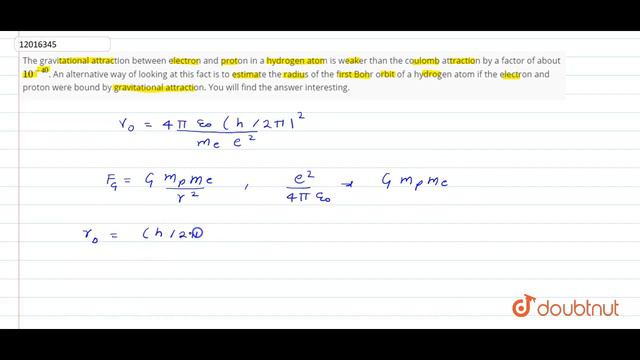 12016345
The gravitational attraction between electron and proton in a hydrogen atom is weaker than the coulomb attraction by a factor of about
10⁻⁴⁰. An alternative way of looking at this fact is to estimate the radius of the first Bohr orbit of a hydrogen atom if the electron and
proton were bound by gravitational attraction. You will find the answer interesting.
r₀ = 4π ε₀ (h/2π)² / mₑ e²
F_G = G mₚ mₑ / r² , e² / 4π ε₀ → G mₚ mₑ
r₀ = (h/2π
doubtnut